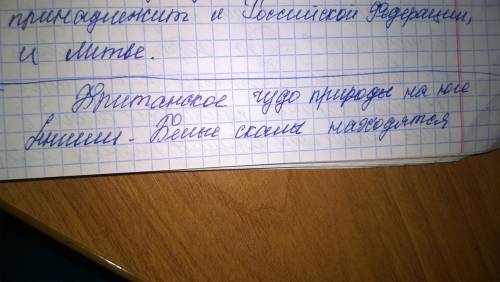 принадлежит и Российской Федерации,
и Литве.
Британское чудо природы на юге
Англии - Белые скалы находятся